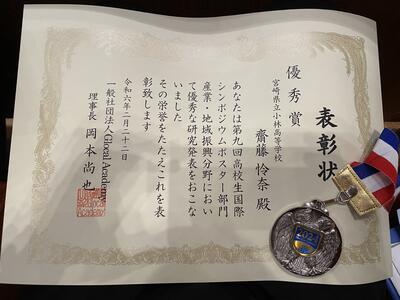 表彰状
優秀賞
宮崎県立小林高等学校
齋藤 怜奈 殿
あなたは第九回高校生国際
シンポジウムポスター部門
産業・地域振興分野におい
て優秀な研究発表をおこな
いました
その栄誉をたたえこれを表
彰致します
令和六年二月二十二日
一般社団法人Glocal Academy
理事長 岡本尚也